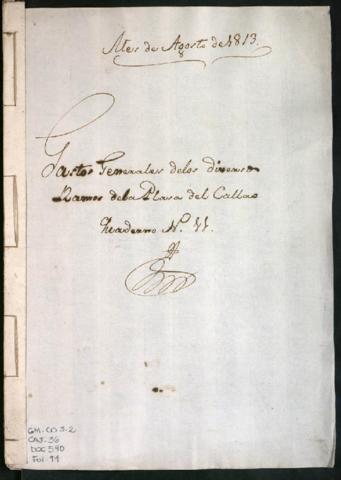 Mes de Agosto de 1813.
Gastos Generales delos diversos
Ramos dela Plasa del Callao
Quaderno N. 11.
GM. CO 3-2
CAJ. 36
DOC 590
Fol 11